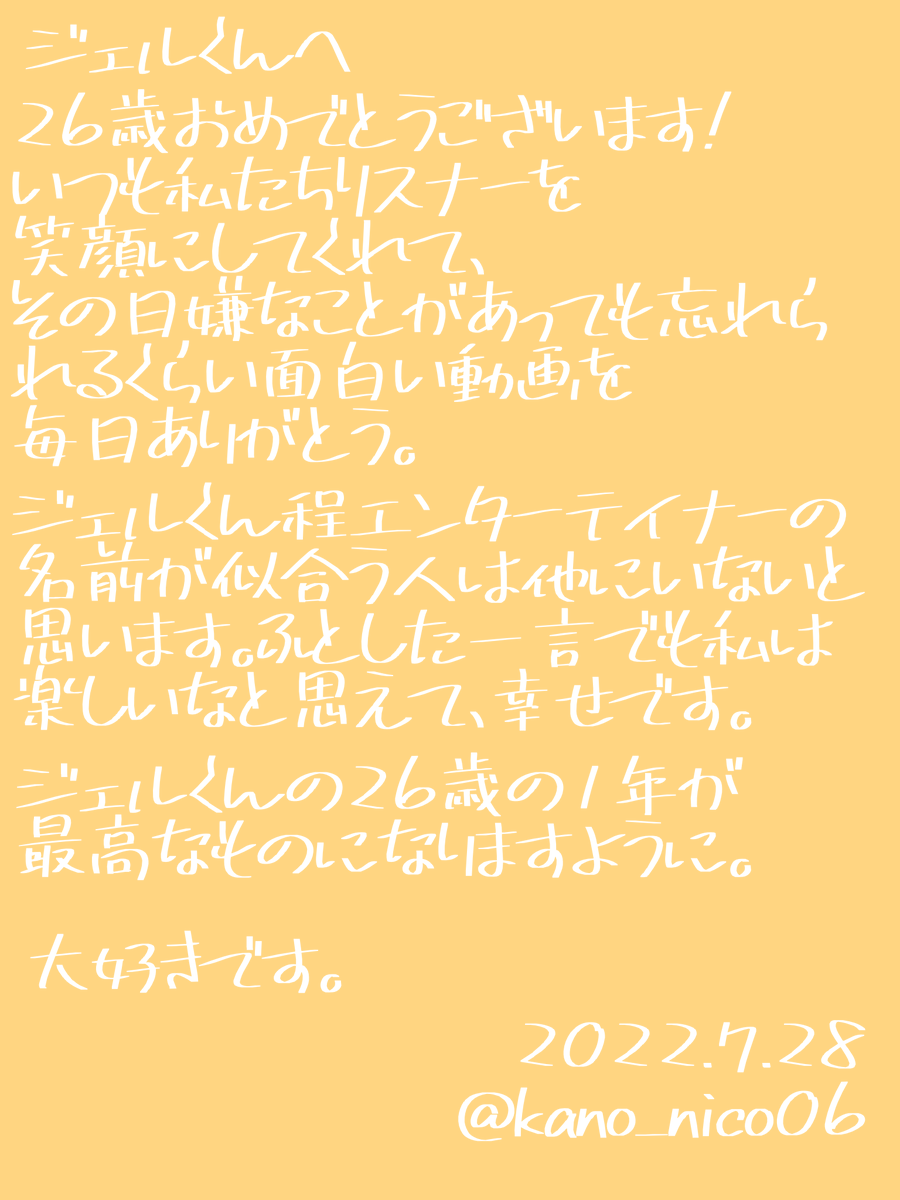 ジェルくんへ
26歳おめでとうございます!
いつも私たちリスナーを
笑顔にしてくれて、
その日嫌なことがあっても忘れら
れるくらい面白い動画を
毎日ありがとう。
ジェルくん程エンターテイナーの
名前が似合う人は他にいないと
思います。ふとした一言でも私は
楽しいなと思えて、幸せです。
ジェルくんの26歳の1年が
最高なものになりますように。
大好きです。
2022.7.28
@kano_nico06